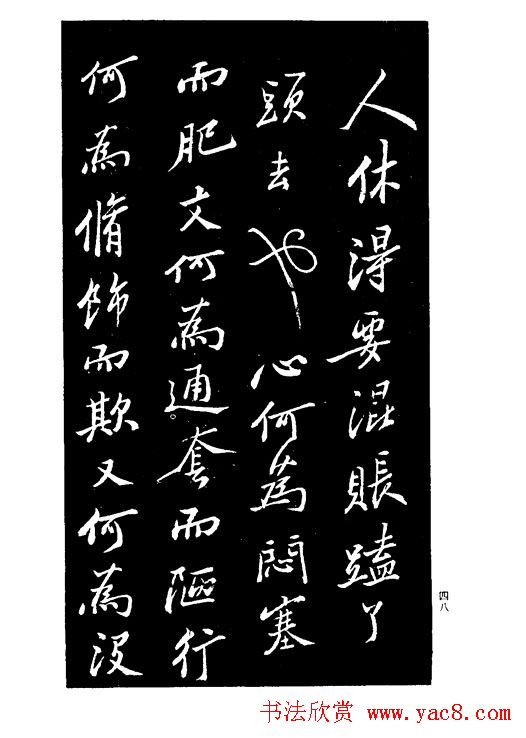 人休得要混賬蹧了
頭去也心何為悶塞
而肥文何為通套而陋行
何為脩飾而欺又何為沒
四八
书法欣赏 www.yac8.com